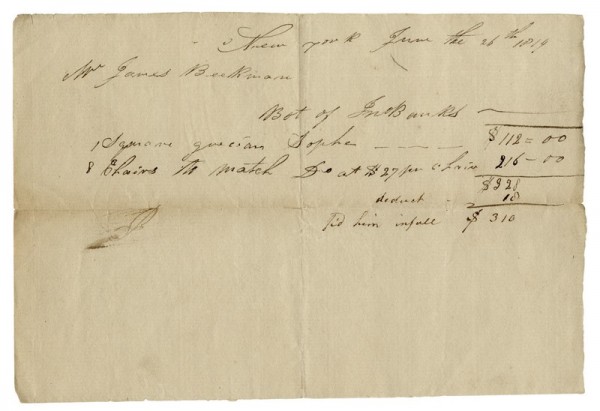 New york June the 26th 1819
Mr James Beekman
Bot of Jno Banks
1 Square grecian Sopha $112=00
8 Chairs to match Do at $27 per Chair 216-00
$328
deduct - 18
Pd him in full $ 310